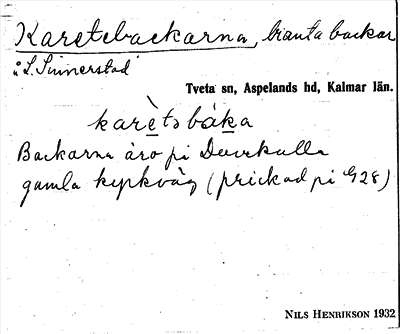 Karetebackarna, branta backar
å L. Sinnerstad
Tveta sn, Aspelands hd, Kalmar län.
karètsbáka
Backarna äro på
gamla kyrkväg (prickad på G28)
NILS HENRIKSON 1932